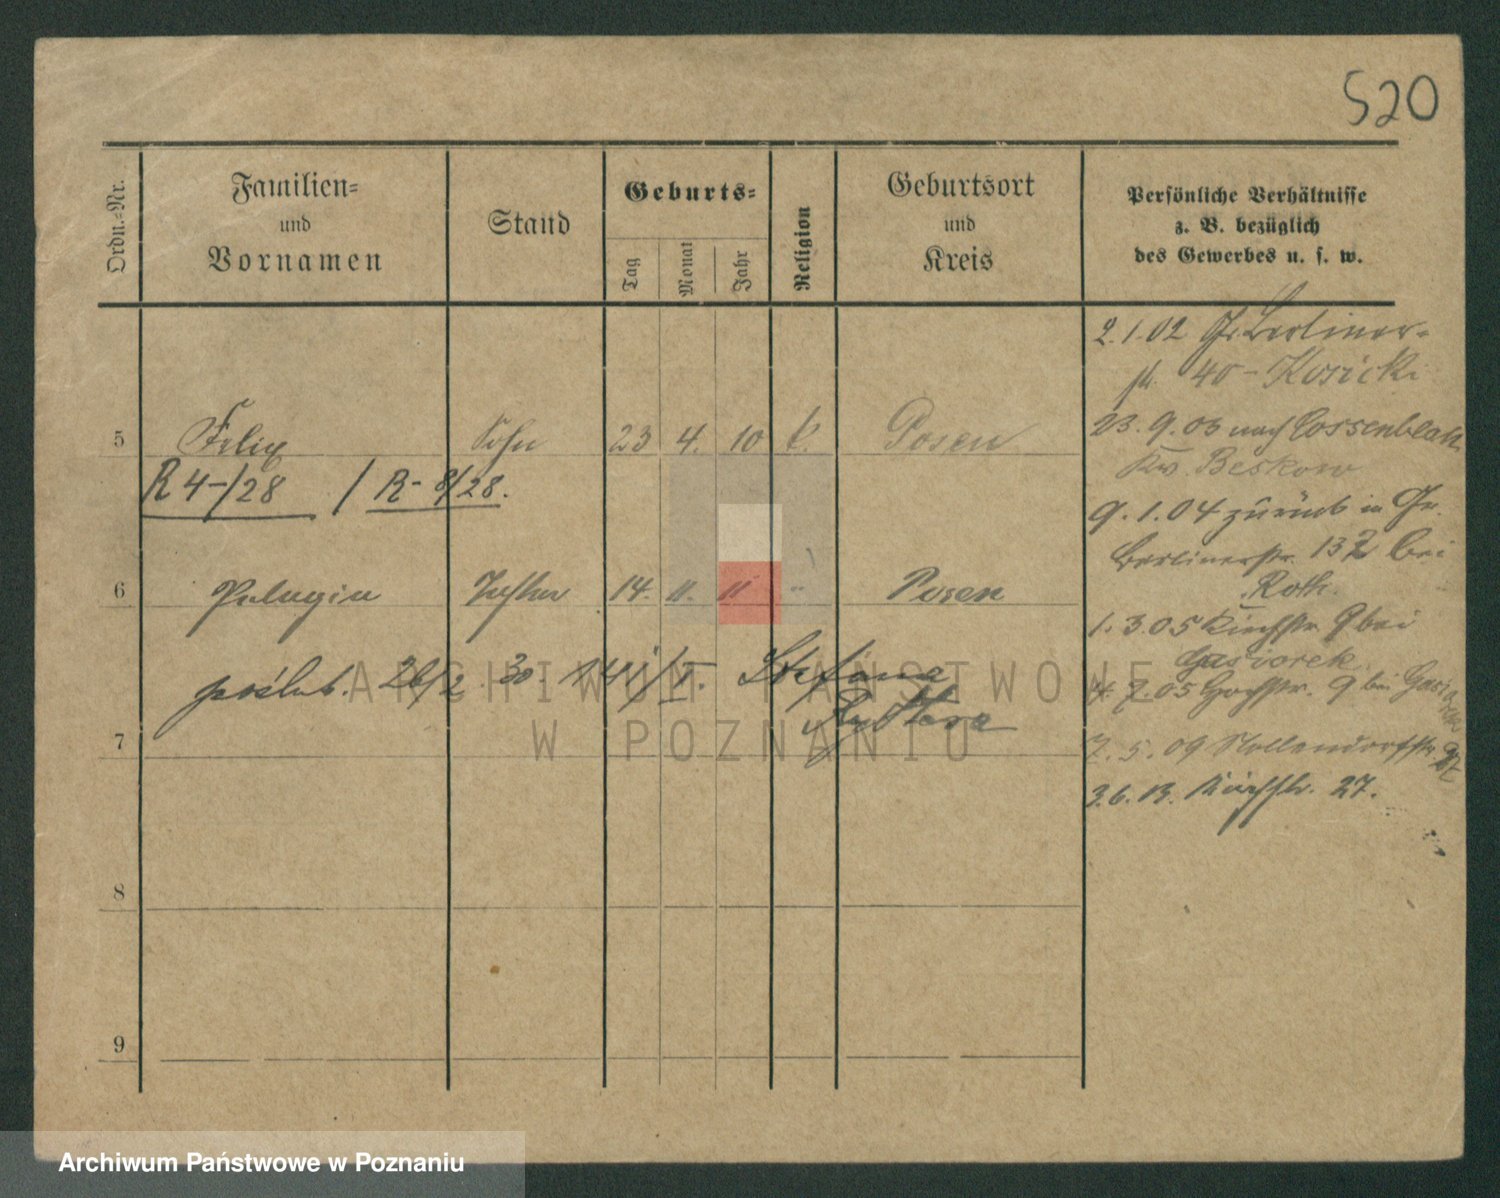 520
Ordn.=Nr.
Familien=
und
Vornamen
Stand
Geburts=
Tag
Monat
Jahr
Religion
Geburtsort
und
Kreis
Persönliche Verhältnisse
z. B. bezüglich
des Gewerbes u. s. w.
5 Felix Sohn 23 4. 10 k. Posen
R 4-/28 / R- 8/28.
6 Pelagia Tochter 14. 11. 11 " Posen
poślub. 26/2 30. Stefana
7
8
9
2.1.02 Gr. Berliner-
str. 40 - Kosicki
23.9.03 nach Cossenblatt
Kr. Beskow
9.1.04 zurück in Gr.
Berlinerstr. 132 bei
Roth.
1.3.05 Kirchstr. 9 bei
Gasiorek.
7.05 Hochstr. 9 bei
7.5.09 Nollendorfstr.
3.6.13. Kirchstr. 27.
ARCHIWUM PAŃSTWOWE
W POZNANIU
Archiwum Państwowe w Poznaniu